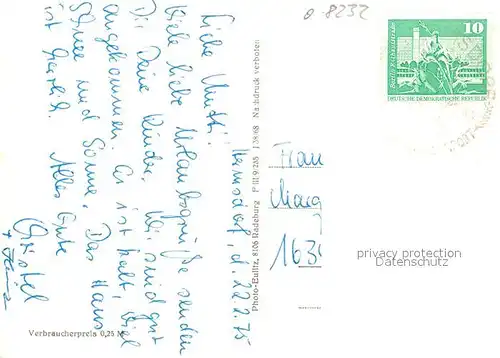 Hermsdorf, d. 22.2.75
Liebe Mutti!
Viele liebe Urlaubsgrüße senden
Dir Deine Kinder. Wir sind gut
angekommen. Es ist kalt, viel
Schnee und Sonne. Das Haus
ist herrlich. Alles Gute
Christel
+ Heinz
Verbraucherpreis 0,25 M
Photo-Eulitz, 8106 Radeburg P III/9/285 J 38/68 Nachdruck verboten
θ-8232
10
DEUTSCHE DEMOKRATISCHE REPUBLIK
Frau
Marg
1636
privacy protection
Datenschutz